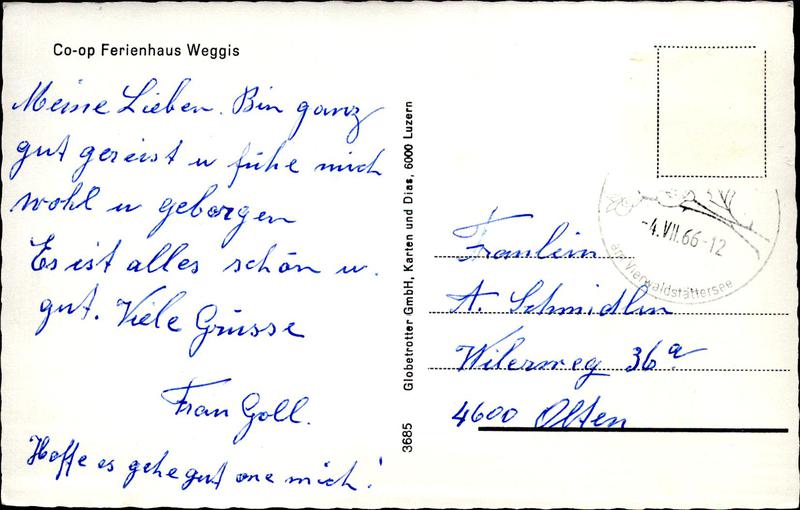 Co-op Ferienhaus Weggis
Meine Lieben. Bin ganz
gut gereist u fühe mich
wohl u geborgen
Es ist alles schön u.
gut. Viele Grüsse
Frau Goll.
Hoffe es gehe gut one mich!
3685 Globetrotter GmbH, Karten und Dias, 6000 Luzern
-4.VII.66-12
am Vierwaldstättersee
Fraulein
A. Schmidlin
Wilerweg 36a
4600 Olten